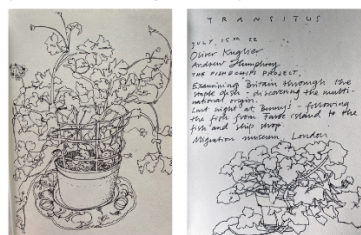 TRANSITUS
JULY, 15TH 22
Oliver Kugler
Andrew Humphrey
THE FISH & CHIPS PROJECT,
Examining Britain through the
staple dish - discovering the multi-
national origin.
Last night at Benny's - following
the fish from Faroe Island to the
fish and chip shop.
Migration museum, London